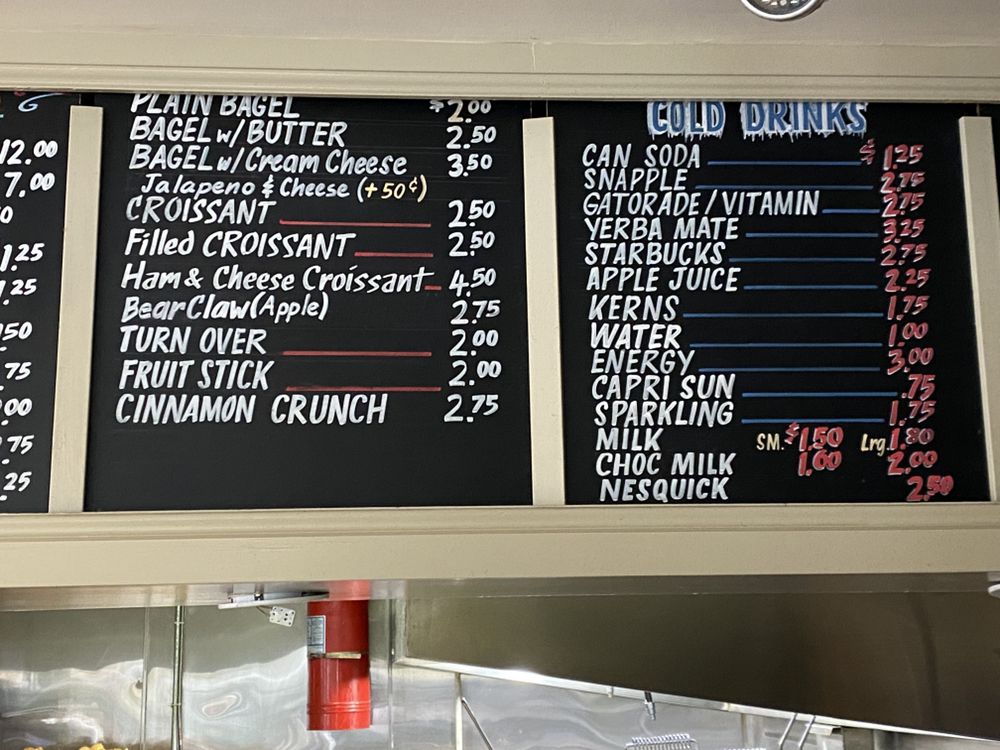 G
12.00
7.00
1.25
.25
50
.75
.00
.75
.25
PLAIN BAGEL $2.00
BAGEL w/BUTTER 2.50
BAGEL w/Cream Cheese 3.50
Jalapeno & Cheese (+50¢)
CROISSANT 2.50
Filled CROISSANT 2.50
Ham & Cheese Croissant 4.50
Bear Claw (Apple) 2.75
TURN OVER 2.00
FRUIT STICK 2.00
CINNAMON CRUNCH 2.75
COLD DRINKS
CAN SODA $1.25
SNAPPLE 2.75
GATORADE/VITAMIN 2.75
YERBA MATE 3.25
STARBUCKS 2.75
APPLE JUICE 2.25
KERNS 1.75
WATER 1.00
ENERGY 3.00
CAPRI SUN .75
SPARKLING 1.75
MILK SM. $1.50 Lrg. 1.80
CHOC MILK 1.60 2.00
NESQUICK 2.50